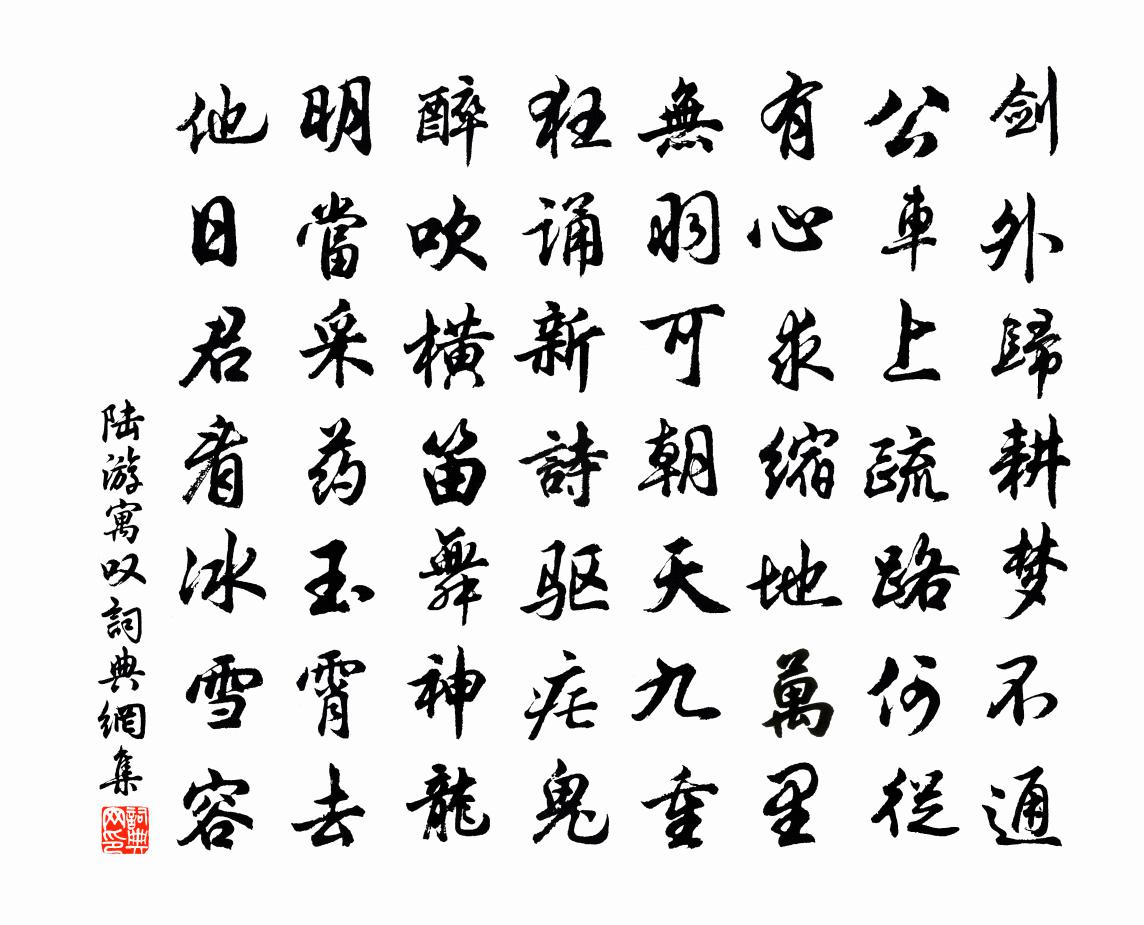 剑外歸耕梦不通
公車上疏路何從
有心求缩地萬里
無羽可朝天九重
狂诵新詩驱疟鬼
醉吹橫笛舞神龍
明當采药玉霄去
他日君看冰雪容
陆游寓叹詞典網集
詞典网印